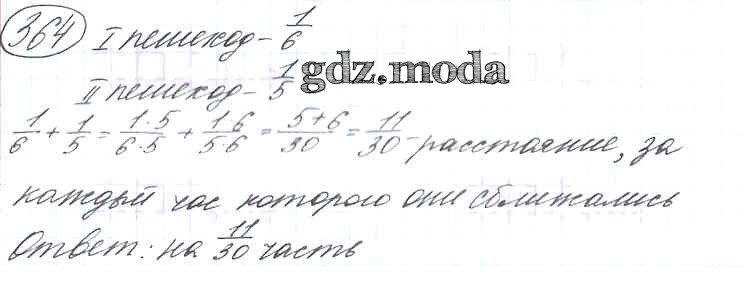 364 I пешеход - 1/6
II пешеход - 1/5
gdz.moda
1/6 + 1/5 = 1·5/6·5 + 1·6/5·6 = 5+6/30 = 11/30 - расстояние, за
каждый час которого они сближались
Ответ: на 11/30 часть